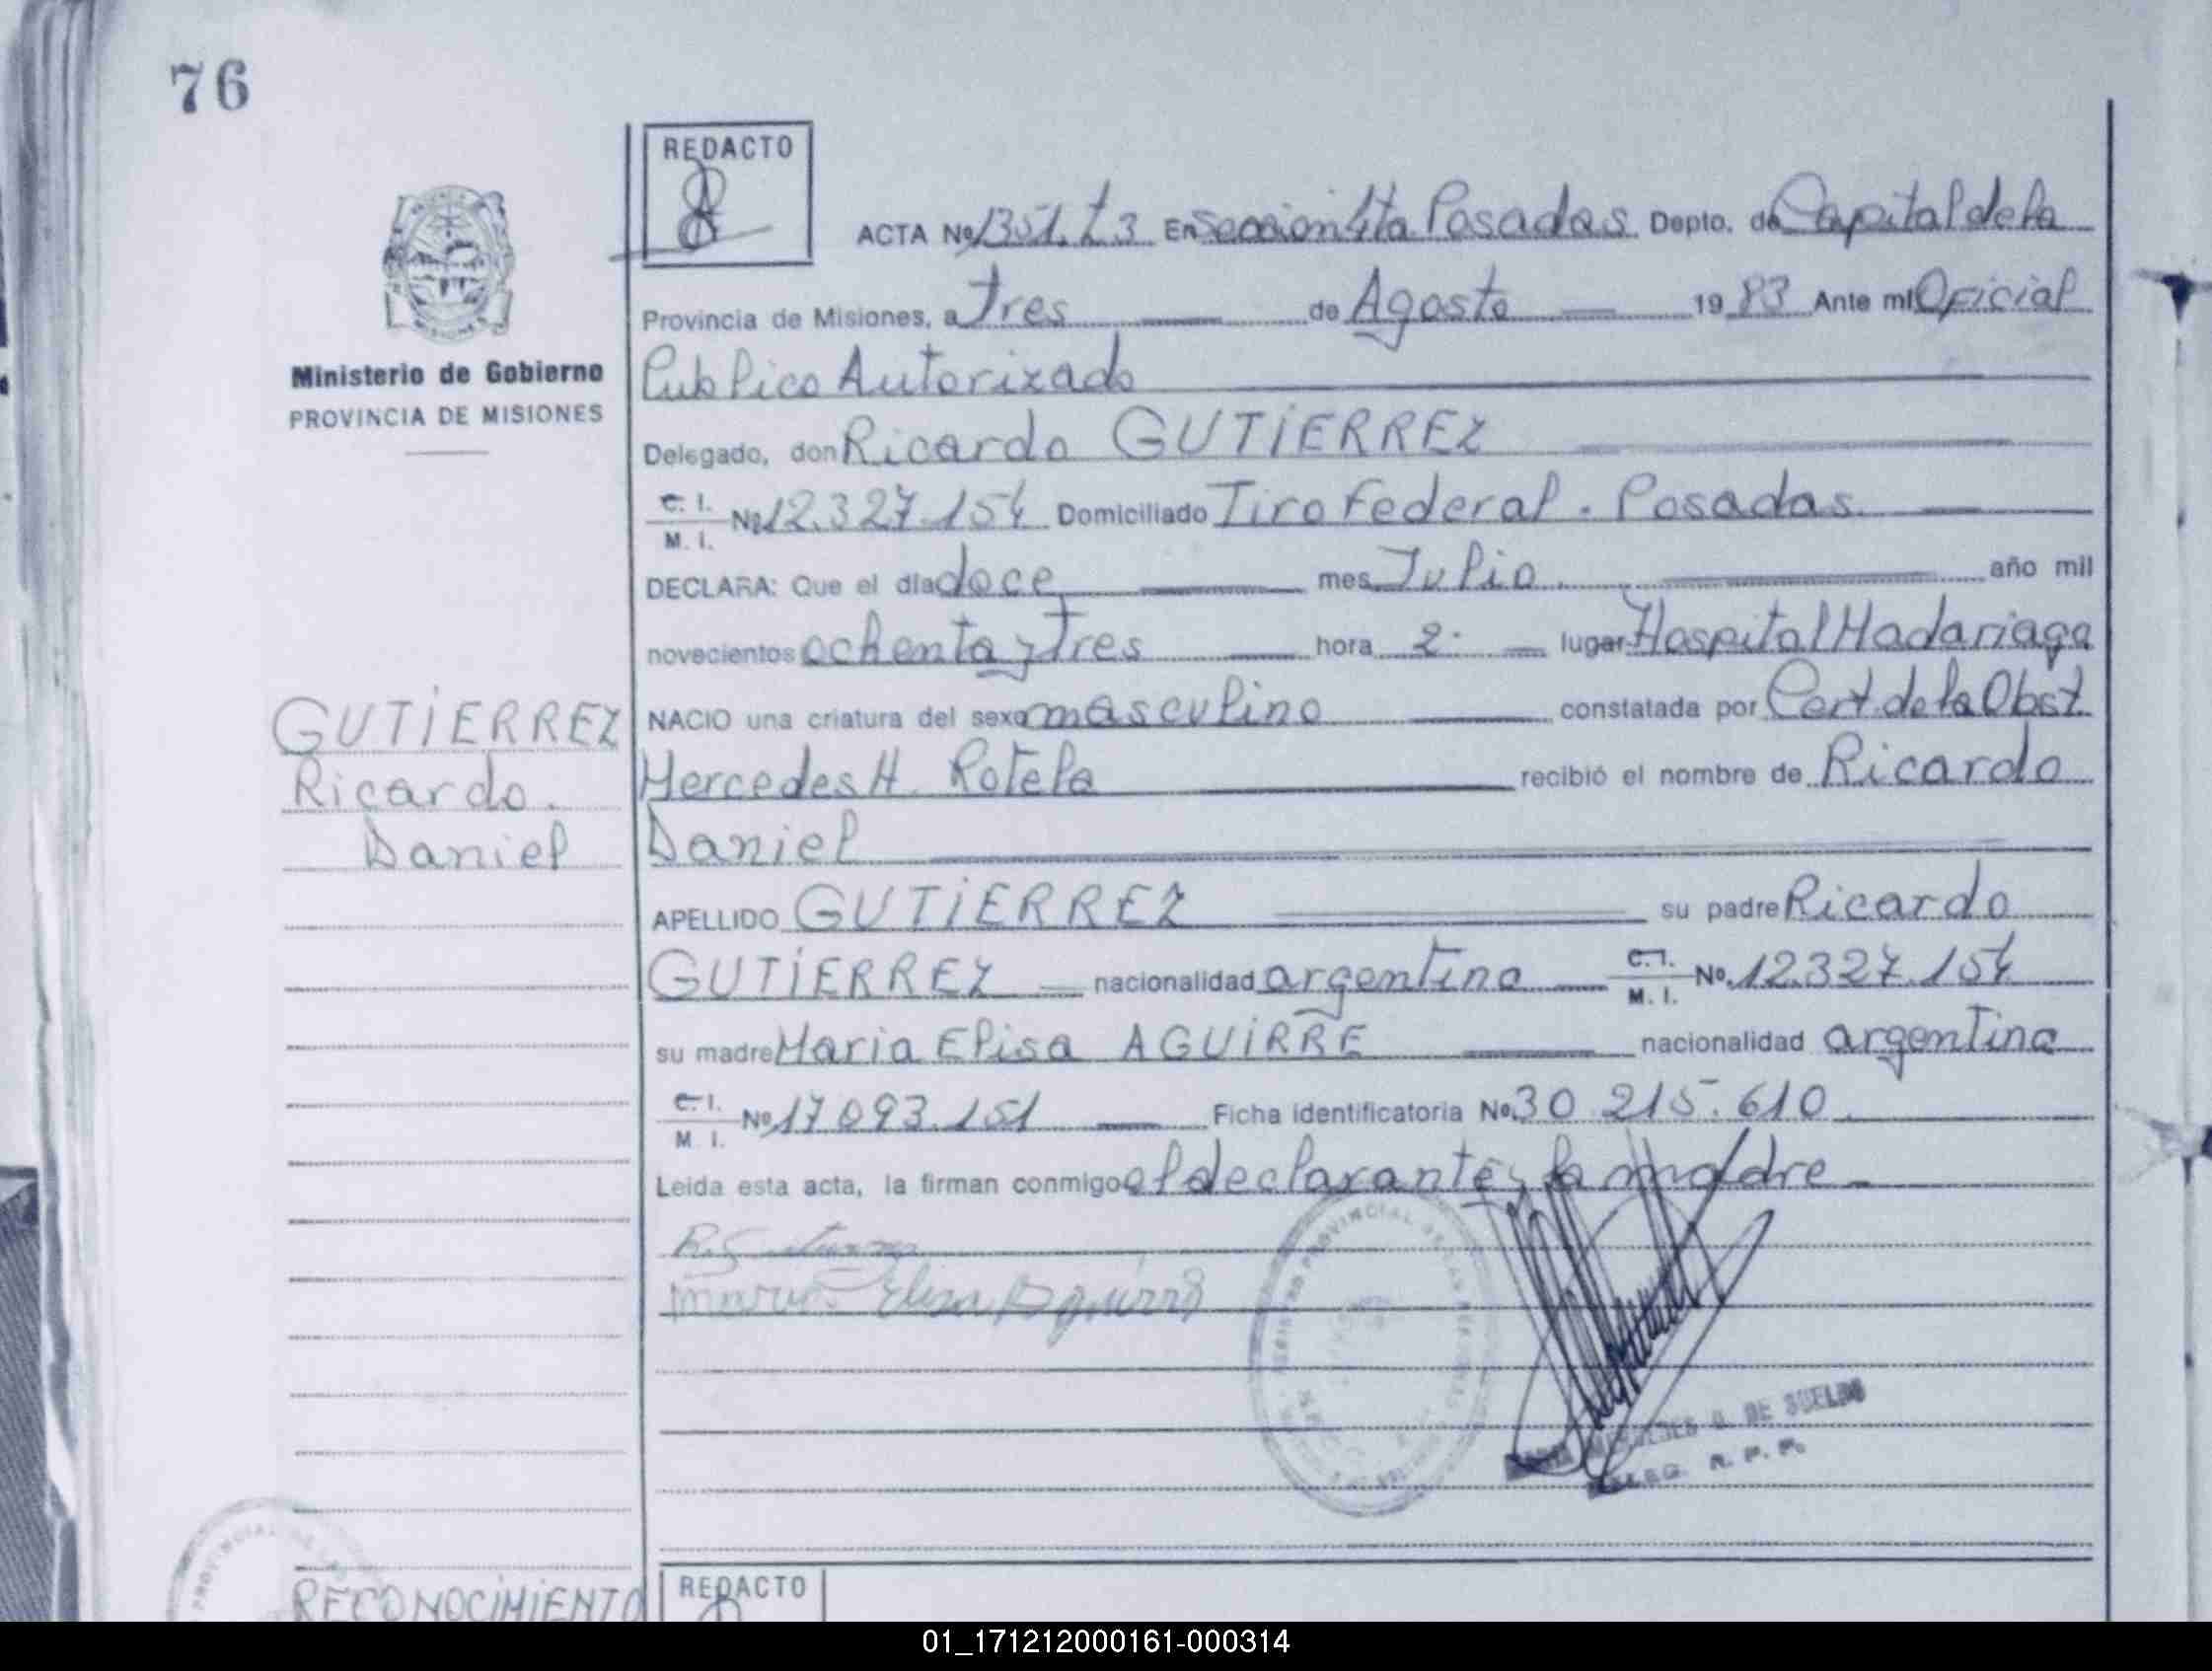 76
REDACTO
ACTA Nº 1351. t 3 En Seccion 4ta Posadas Depto. de Capital de la
Provincia de Misiones, a tres de Agosto 19 83 Ante mí Oficial
Ministerio de Gobierno
PROVINCIA DE MISIONES
Publico Autorizado
Delegado, don Ricardo GUTIERREZ
C. I.
M. I.
Nº 12.327.154 Domiciliado Tiro Federal. Posadas
DECLARA: Que el día doce mes Julio año mil
novecientos ochenta y tres hora 2 lugar Hospital Madariaga
NACIO una criatura del sexo masculino constatada por Cert. de la Obst.
GUTIERREZ
Ricardo.
Daniel
Mercedes H. Rotela recibió el nombre de Ricardo
Daniel
APELLIDO GUTIERREZ su padre Ricardo
GUTIERREZ nacionalidad argentina C. I. M. I. No. 12.327.154
su madre Maria Elisa AGUIRRE nacionalidad argentina
C. I.
M. I.
Nº 17.093.151 Ficha identificatoria No. 30 215.610
Leida esta acta, la firman conmigo el declarante y la madre
Maria Elisa Aguirre
DE SUELDO
R. P. P.
RECONOCIMIENTO
REDACTO
01_171212000161-000314